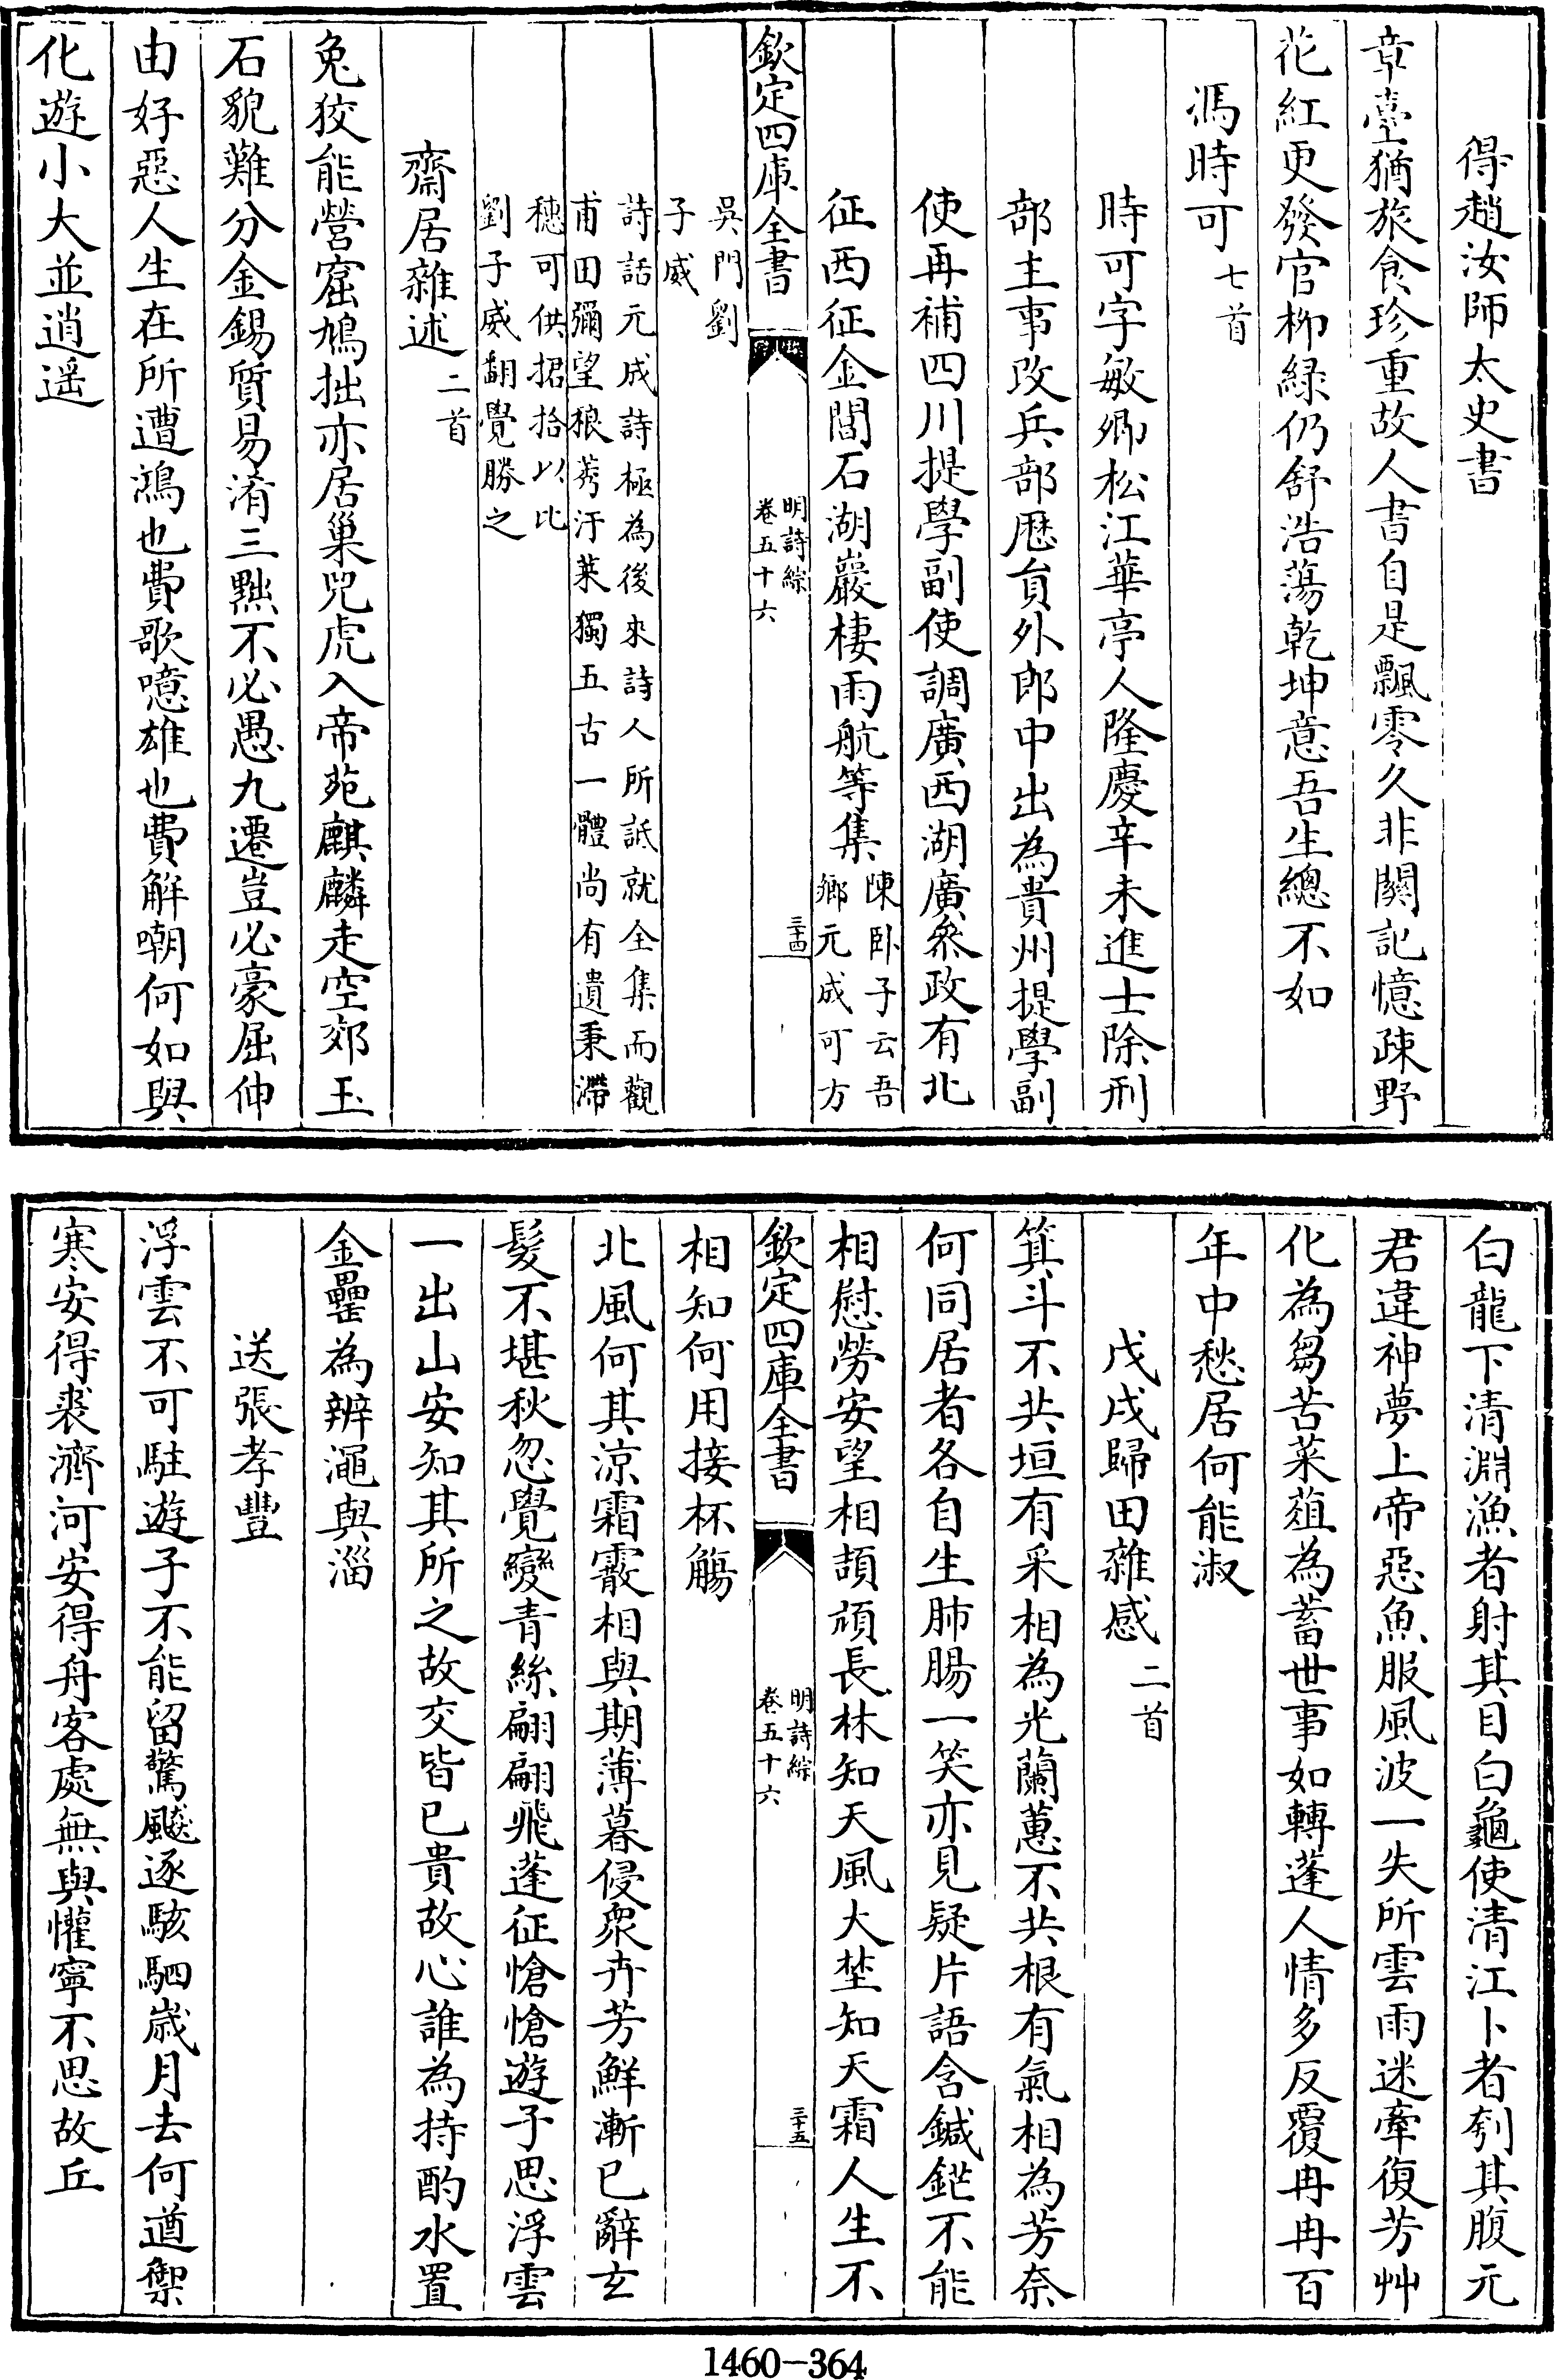 得趙汝師太史書
章臺猶旅食珍重故人書自是飄零久非關記憶疎野
花紅更發官柳緑仍舒浩蕩乾坤意吾生總不如
馮時可七首
時可字敏卿松江華亭人隆慶辛未進士除刑
部主事改兵部歴員外郎中出為貴州提學副
使再補四川提學副使調廣西湖廣叅政有北
征西征金閶石湖巖棲雨航等集陳卧子云吾
鄉元成可方
欽定四庫全書
明詩綜
卷五十六
三十四
吳門劉
子威
詩話元成詩極為後來詩人所詆就全集而觀
甫田彌望稂莠汙萊獨五古一體尚有遺秉滯
穗可供捃拾以比
劉子威翻覺勝之
齋居雜述二首
兔狡能營窟鳩拙亦居巢兕虎入帝苑麒麟走空郊玉
石貌難分金錫質易淆三黜不必愚九遷豈必豪屈伸
由好惡人生在所遭鴻也費歌噫雄也費解嘲何如與
化遊小大並逍遥
白龍下清淵漁者射其目白龜使清江卜者刳其腹元
君違神夢上帝惡魚服風波一失所雲雨迷牽復芳艸
化為芻苦菜葅為蓄世事如轉蓬人情多反覆冉冉百
年中愁居何能淑
戊戌歸田雜感二首
箕斗不共垣有采相為光蘭蕙不共根有氣相為芳奈
何同居者各自生肺腸一笑亦見疑片語含鍼鋩不能
相慰勞安望相頡頏長林知天風大埜知天霜人生不
欽定四庫全書
明詩綜
卷五十六
三十五
相知何用接杯觴
北風何其涼霜霰相與期薄暮侵衆卉芳鮮漸已辭玄
髮不堪秋忽覺變青絲翩翩飛蓬征愴愴遊子思浮雲
一出山安知其所之故交皆已貴故心誰為持酌水置
金罍為辨澠與淄
送張孝豐
浮雲不可駐遊子不能留驚飈逐駭駟嵗月去何遒禦
寒安得裘濟河安得舟客處無與懽寧不思故丘
1460-364